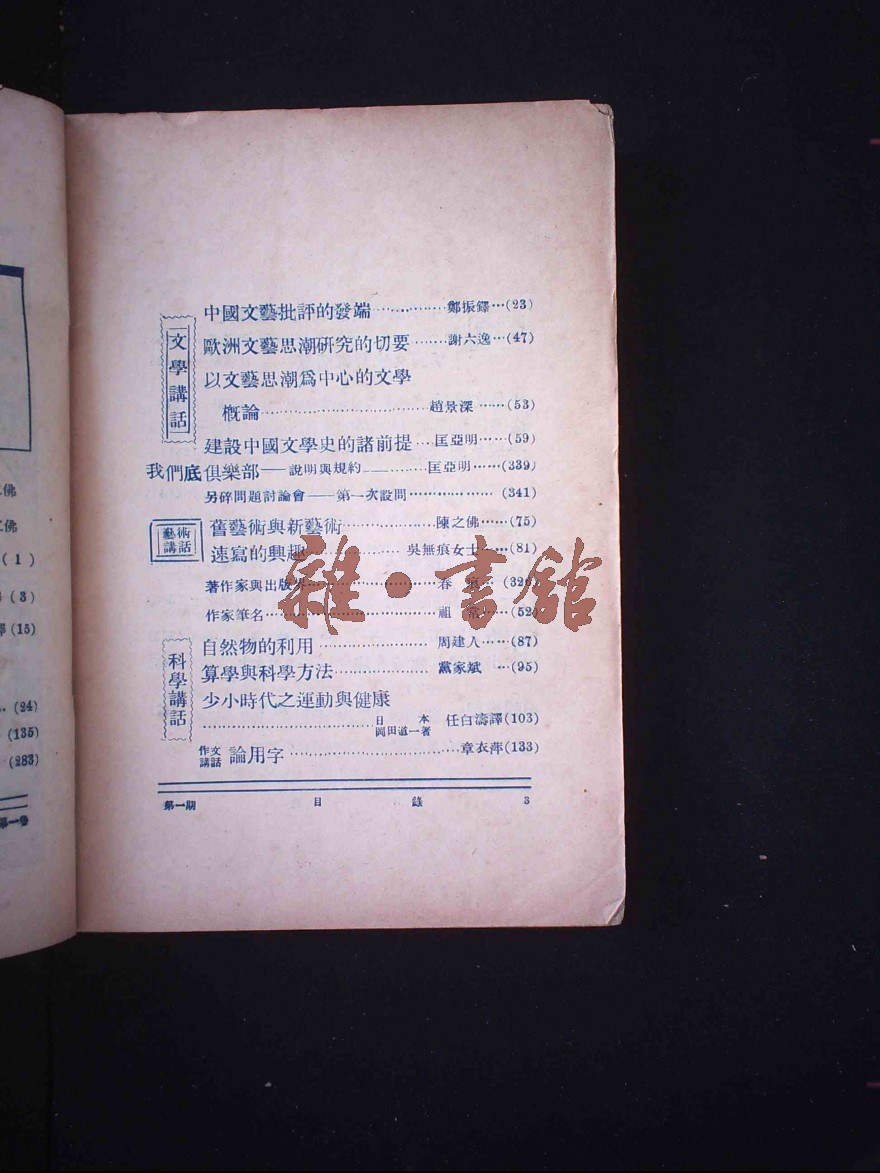 文學講話
中國文藝批評的發端……………鄭振鐸…(23)
歐洲文藝思潮研究的切要……謝六逸…(47)
以文藝思潮爲中心的文學
概論……………………趙景深……(53)
建設中國文學史的諸前提…匡亞明……(59)
我們底俱樂部——說明與規約…………匡亞明……(339)
另碎問題討論會——第一次設問………………(341)
藝術講話
舊藝術與新藝術………………陳之佛……(75)
速寫的興趣………………吳無痕女士……(81)
著作家與出版界………………………春
作家筆名………………………………祖 (52)
科學講話
自然物的利用…………………周建人……(87)
算學與科學方法………………黨家斌…(95)
少小時代之運動與健康
……………………………日本岡田道一著 任白濤譯(103)
作文講話 論用字……………………………章衣萍(133)
第一期 目錄 3
佛
佛
(1)
(3)
譯(15)
(24)
(135)
(283)
第一卷
雜·書館